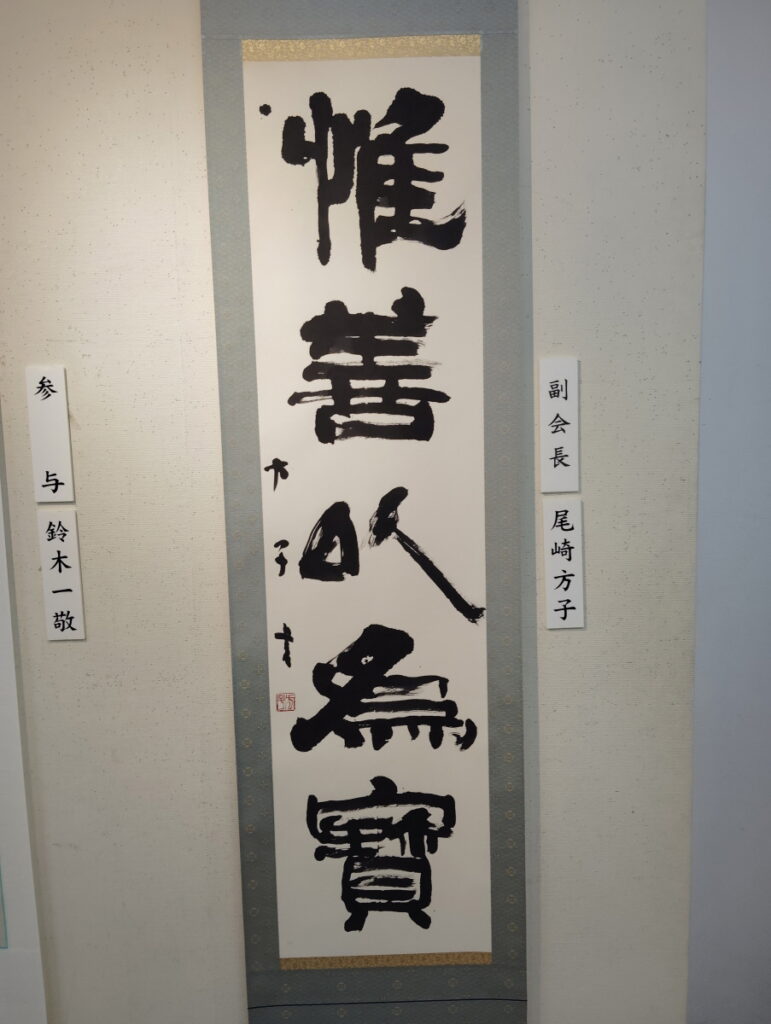 惟善以為寶
方子書
副会長
尾崎方子
参与
鈴木一敬